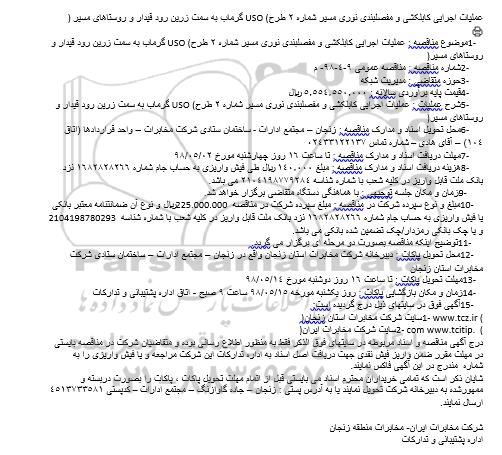 عملیات اجرایی کابلکشی و مفصلبندی نوری مسیر شماره ۲ طرح) USO گرماب به سمت زرین رود قیدار و روستاهای مسیر (
1-موضوع مناقصه : عملیات اجرایی کابلکشی و مفصلبندی نوری مسیر شماره ۲ طرح) USO گرماب به سمت زرین رود قیدار و
روستاهای مسیر(
2-شماره مناقصه : مناقصه عمومی ۹-۴-۹۸- م
3-حوزه متقاضی : مدیریت شبکه
4-قیمت پایه برآوردی سالانه : ۵,۵۵۴,۵۵۰,۰۰۰ ریال
5-شرح عملیات : عملیات اجرایی کابلکشی و مفصلبندی نوری مسیر شماره ۲ طرح) USO گرماب به سمت زرین رود قیدار و
روستاهای مسیر(
6-محل تحویل اسناد و مدارک مناقصه : زنجان – مجتمع ادارات - ساختمان ستادی شرکت مخابرات – واحد قراردادها (اتاق
۱۰۴) – آقای هادی – شماره تماس ۰۲۴۳۳۱۲۲۱۳۷
7-مهلت دریافت اسناد و مدارک مناقصه : تا ساعت ۱۶ روز چهارشنبه مورخ ۹۸/۰۵/۰۲
8-هزینه دریافت اسناد و مدارک مناقصه : مبلغ ۱۴۰,۰۰۰ ریال طی فیش واریزی به حساب جام شماره ۱۶۸۲۸۲۸۲۶۶ نزد
بانک ملت قابل واریز در کلیه شعب با شماره شناسه ۲۱۰۴۱۹۸۷۷۹۲۸۴ می باشد.
9-زمان و مکان جلسه توجیهی : با هماهنگی دستگاه متقاضی برگزار خواهد شد.
10-مبلغ و نوع سپرده شرکت در مناقصه : مبلغ سپرده شرکت در مناقصه 225.000.000ریال و نوع آن ضمانتنامه معتبر بانکی
یا فیش واریزی به حساب جام شماره ۱۶۸۲۸۲۸۲۶۶ نزد بانک ملت قابل واریز در کلیه شعب با شماره شناسه 2104198780293
و یا چک بانکی رمزدار/چک تضمین شده بانکی می باشد.
11-توضیح اینکه مناقصه بصورت دو مرحله ای برگزار می گردد.
12-محل تحویل پاکات : دبیرخانه شرکت مخابرات استان زنجان واقع در زنجان – مجتمع ادارات – ساختمان ستادی شرکت
مخابرات استان زنجان
13-مهلت تحویل پاکات : تا ساعت ۱۶ روز دوشنبه مورخ ۹۸/۰۵/۱۴
14-زمان و مکان بازگشایی پاکات : روز یکشنبه مورخه ۹۸/۰۵/۱۵ ساعت ۹ صبح - اتاق اداره پشتیبانی و تدارکات
15-آگهی فوق در سایتهای ذیل درج گردیده است:
) www.tcz.ir -1سایت شرکت مخابرات استان زنجان(
) com www.tcitip. -2سایت شرکت مخابرات ایران(
درج آگهی مناقصه و اسناد مربوطه در سایتهای فوق الذکر فقط به منظور اطلاع رسانی بوده و متقاضیان شرکت در مناقصه بایستی
در مهلت مقرر ضمن واریز فیش نقدی جهت دریافت اصل اسناد به اداره تدارکات این شرکت مراجعه و یا فیش واریزی را به
شماره مندرج در این آگهی فاکس نمایند.
شایان ذکر است که تمامی خریداران محترم اسناد می بایستی قبل از اتمام مهلت تحویل پاکات ، پاکات را بصورت دربسته و
ممهورشده به دبیرخانه شرکت تحویل نمایند یا به آدرس پستی : زنجان – جاده گاوازنگ – مجتمع ادارات – کدپستی ۴۵۱۳۷۳۳۵۸۱
ارسال نمایند.
شرکت مخابرات ایران- مخابرات منطقه زنجان
اداره پشتیبانی و تدارکات